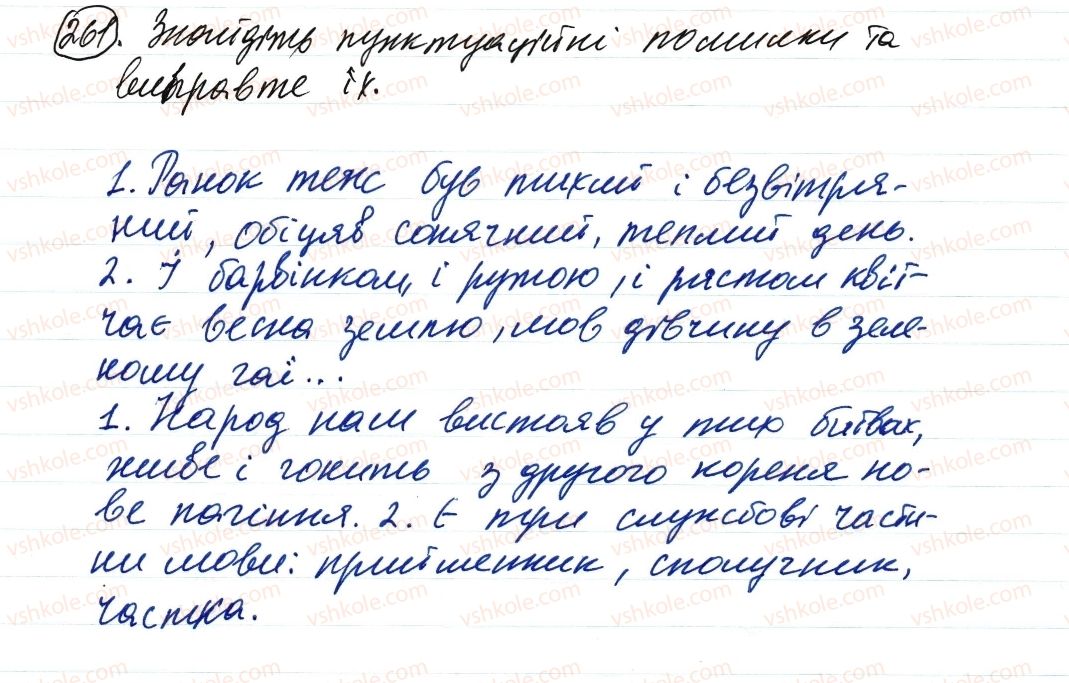 261. Знайдіть пунктуаційні помилки та
виправте їх.
1. Ранок теж був тихий і безвітря-
ний, обіцяв сонячний, теплий день.
2. І барвінком, і рутою, і рястом квіт-
чає весна землю, мов дівчину в зеле-
ному гаї...
1. Народ наш вистояв у тих битвах,
живе і гонить з другого кореня но-
ве пагіння. 2. Є три службові части-
ни мови: прийменник, сполучник,
частка.
vshkole.com